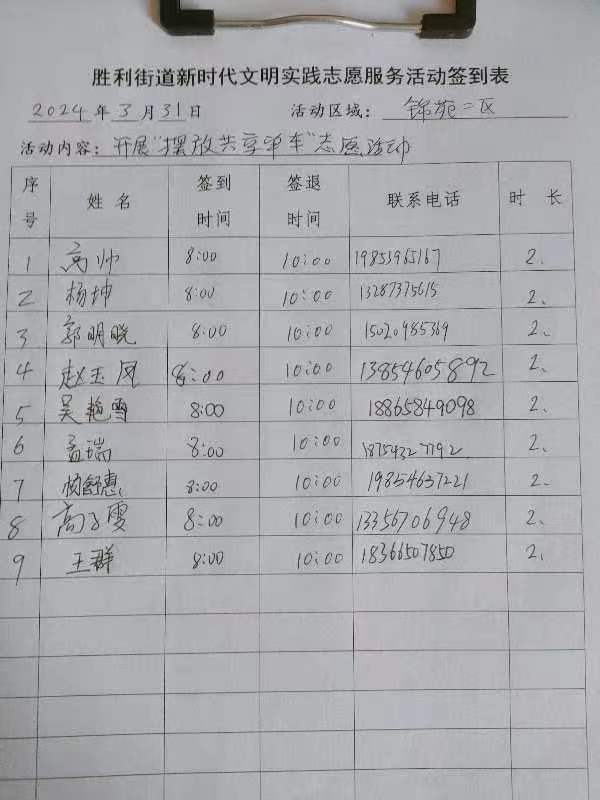 胜利街道新时代文明实践志愿服务活动签到表
2024年3月31日 活动区域：锦苑二区
活动内容：开展“摆放共享单车”志愿活动
序号 姓名 签到时间 签退时间 联系电话 时长
1 高帅 8:00 10:00 19853965167 2、
2 杨坤 8:00 10:00 13287375615 2、
3 郭明晓 8:00 10:00 15020985369 2、
4 赵玉凤 8:00 10:00 13854605892 2、
5 吴艳雪 8:00 10:00 18865849098 2、
6 孟瑞 8:00 10:00 2、
7 舒惠 8:00 10:00 19854637221 2、
8 高子雯 8:00 10:00 13356706948 2、
9 王群 8:00 10:00 18366507850 2、